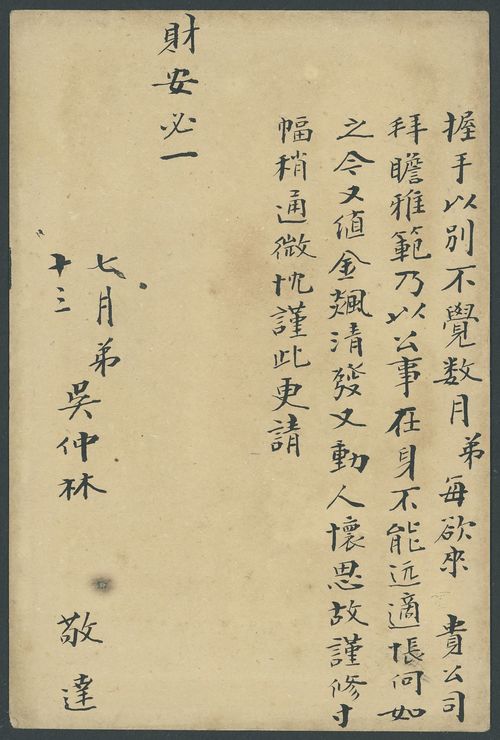 握手以別不覺数月弟每欲來 貴公司
拜瞻雅範乃以公事在身不能远適悵何如
之今又值金颯清發又動人懷思故謹修寸
幅稍通微忱謹此更請
財安必一
七月十三 弟吳仲林 敬達